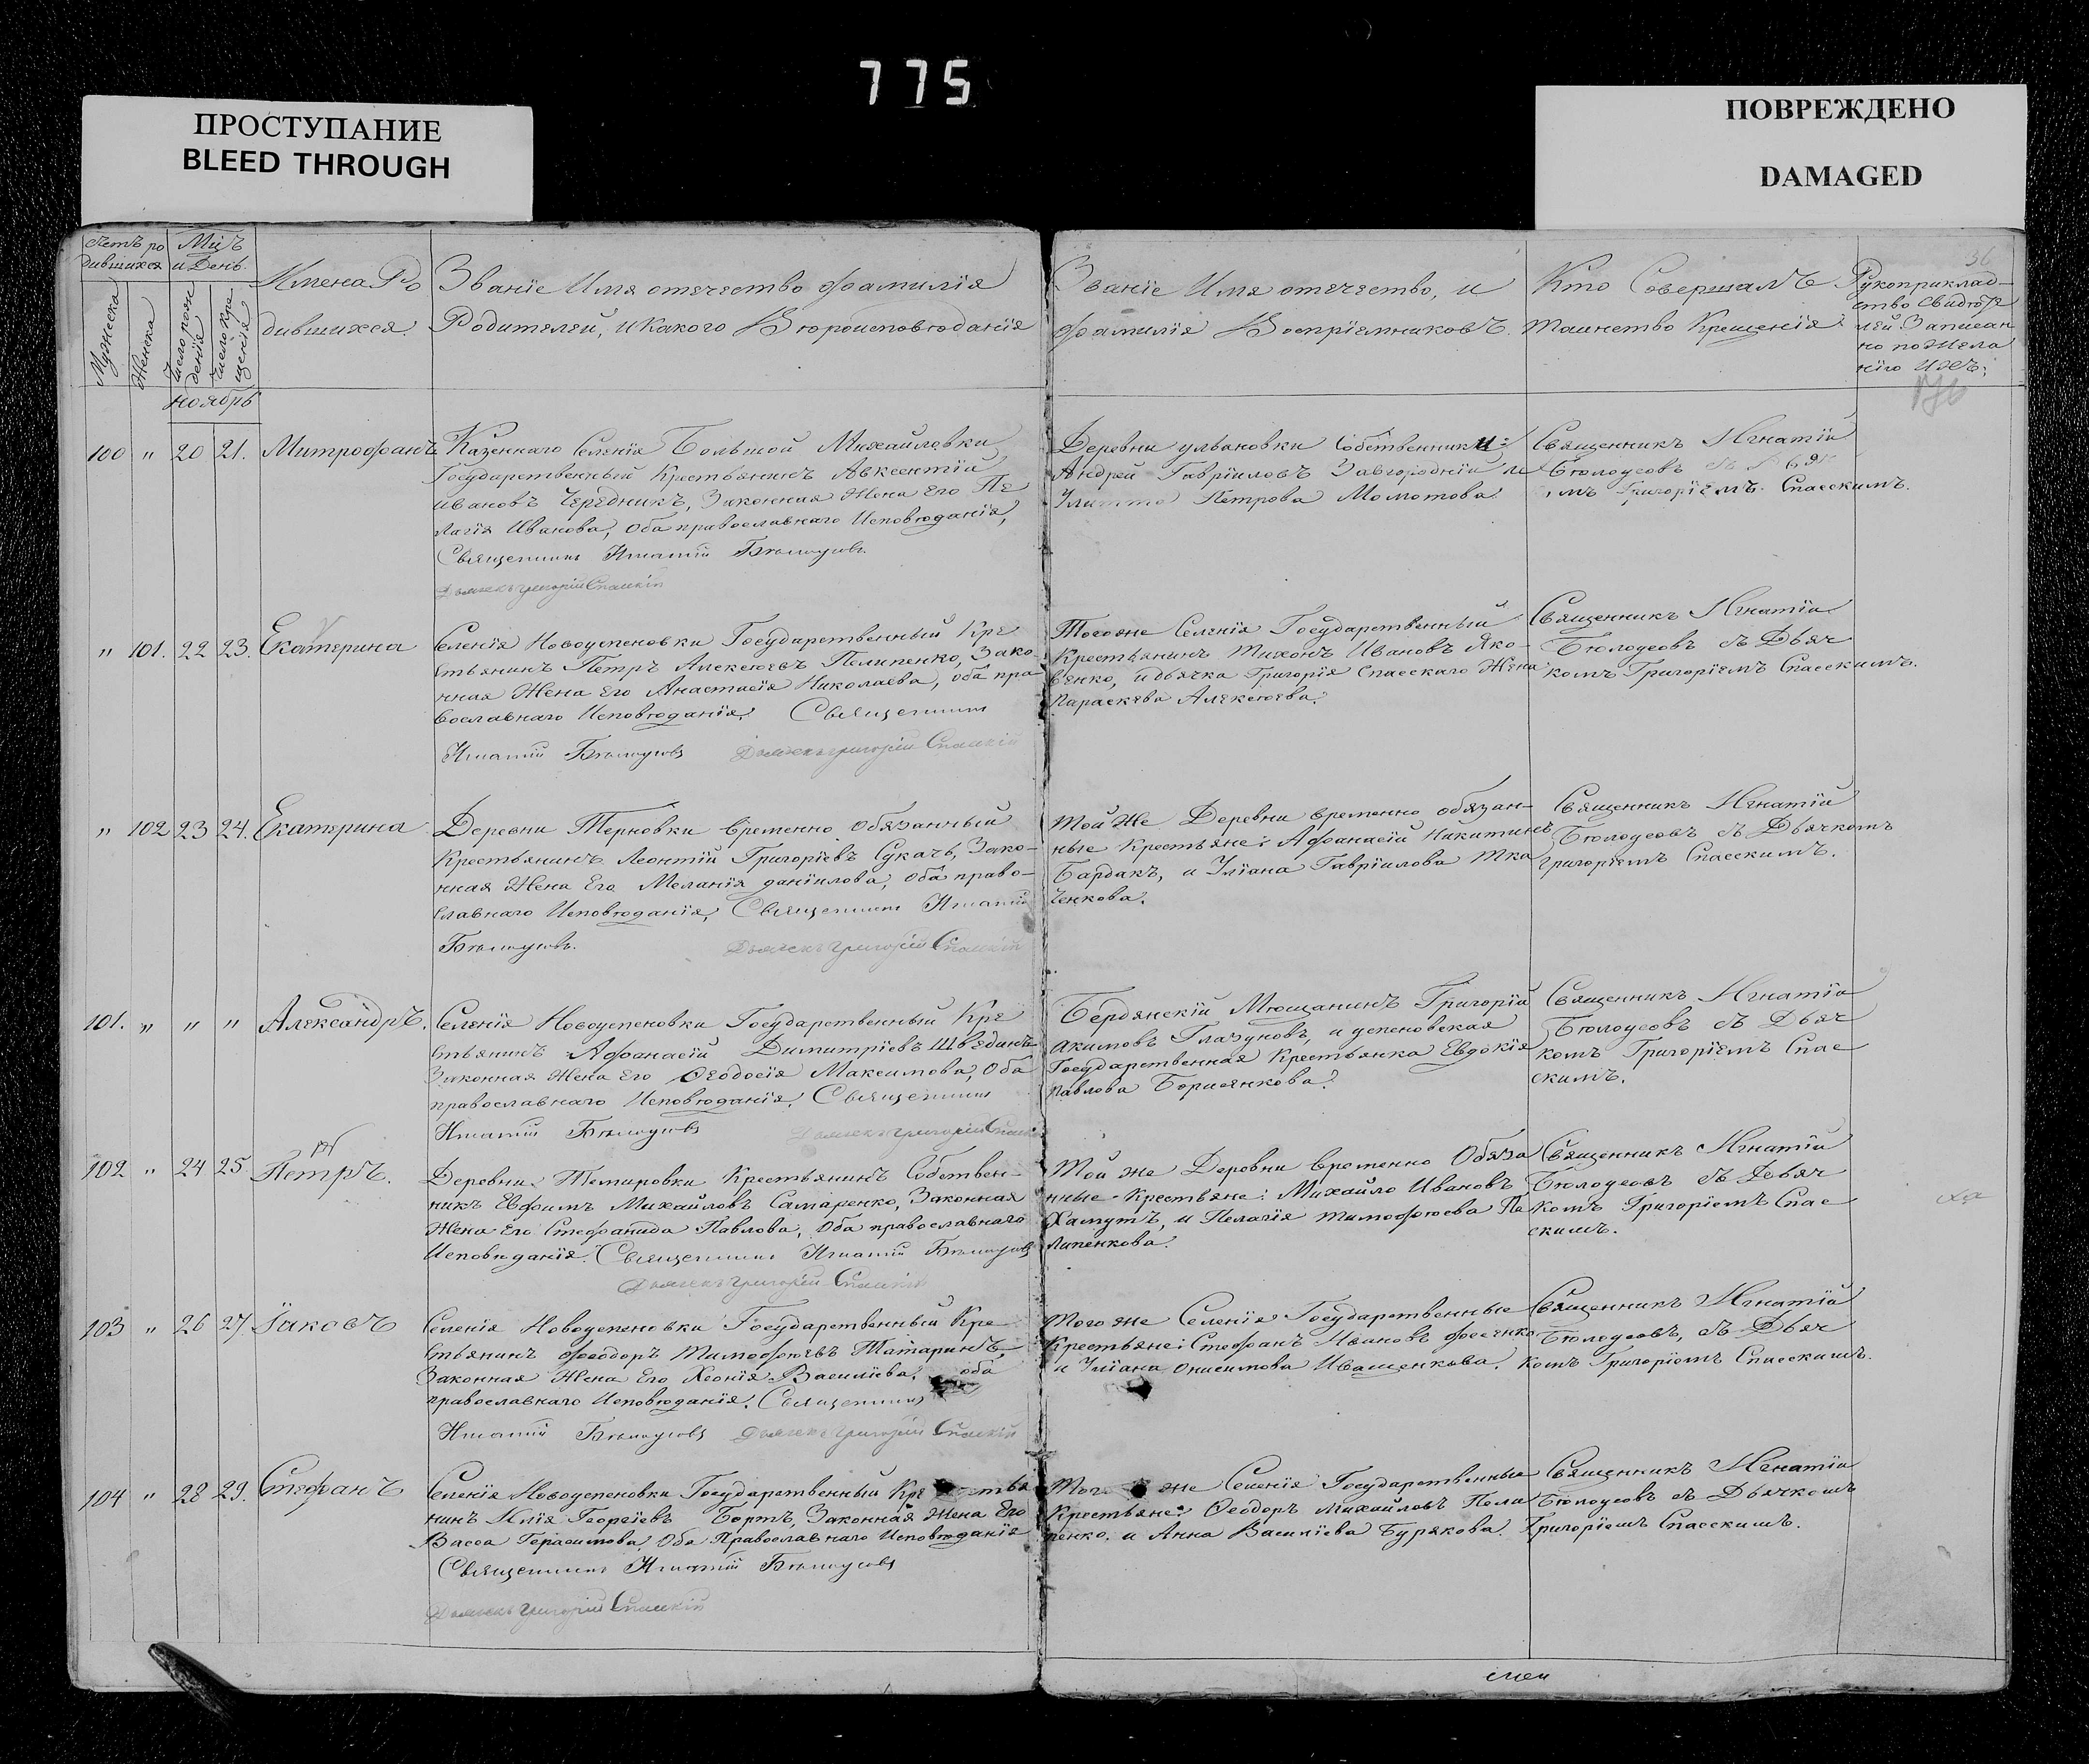 775
ПРОСТУПАНИЕ
BLEED THROUGH
ПОВРЕЖДЕНО
DAMAGED
36
Счетъ ро
дившихся
Мужеска
Женска
Мцъ
и День.
Число рож
денія
Число кре
щенія
Имена Ро
дившихся.
Званіе Имя отечество фамилія
Родителей, и какого Вѣроисповѣданія
Званіе Имя отечество, и
фамилія Воспріемниковъ.
Кто Совершалъ
таинство Крещенія
Рукоприклад-
ство свидѣте
лей Записан
но по жела
нію Ихъ:
ноябрь
100 " 20 21. Митрофанъ
Казеннаго Селенія Большой Михайловки
Государственный Крестьянинъ Авксентій
Ивановъ Чередникъ, Законная Жена Его Пе
лагія Иванова, Оба православнаго Исповѣданія,
Священникъ Игнатій Бѣлоусовъ
Дьячекъ Григорій Спасскій
Деревни ульвановки Собственники:
Андрей Гавріиловъ Завгородній и
Петрова Момотова.
Священникъ Игнатій
Бѣлоусовъ
Григоріемъ Спасскимъ.
" 101. 22 23. Екатерина
Селенія Новоуспеновки Государственный Кре
стьянинъ Петръ Алексѣевъ Пелипенко, Зако-
нная Жена Его Анастасія Николаева, оба пра
вославнаго Исповѣданія, Священникъ
Игнатій Бѣлоусовъ Дьячекъ Григорій Спасскій
Тогоже Селенія Государственный
Крестьянинъ Тихонъ Ивановъ Яко-
венко, и дьячка Григорія Спасскаго Жена
Параскева Алексѣева.
Священникъ Игнатій
Бѣлоусовъ съ Дьяч
комъ Григоріемъ Спасскимъ.
" 102 23 24. Екатерина
Деревни Терновки временно обязанный
Крестьянинъ Леонтій Григоріевъ Сукачь, Зако-
нная Жена Его Меланія даніилова, оба право-
славнаго Исповѣданія, Священникъ Игнатій
Бѣлоусовъ. Дьячекъ Григорій Спасскій
Той Же Деревни временно обязан-
ные Крестьяне: Афанасій Никитинъ
Бардакъ, и Уліана Гавріилова Тка
ченкова.
Священникъ Игнатій
Бѣлоусовъ съ Дьячкомъ
Григоріемъ Спасскимъ.
101. " " " Александръ.
Селенія Новоуспеновки Государственный Кре
стьянинъ Афанасій Димитріевъ Швединъ
Законная Жена Его Феодосія Максимова, Оба
православнаго Исповѣданія. Священникъ
Игнатій Бѣлоусовъ Дьячекъ Григорій Спасскій
Бердянскій Мѣщанинъ Григорій
Акимовъ Глазуновъ, и успеновская
Государственная Крестьянка Евдокія
Павлова Борисенкова.
Священникъ Игнатій
Бѣлоусовъ съ Дьяч
комъ Григоріемъ Спас
скимъ.
102 " 24 25. Петръ.
Деревни Темировки Крестьянинъ Собствен-
никъ Евфимъ Михайловъ Самаренко, Законная
Жена Его Стефанида Павлова, Оба православнаго
Исповѣданія. Священникъ Игнатій Бѣлоусовъ
Дьячекъ Григорій Спасскій
Той же Деревни временно Обяза
нные Крестьяне: Михайло Ивановъ
Хамутъ, и Пелагія Тимофѣева Пе
липенкова.
Священникъ Игнатій
Бѣлоусовъ съ Дьяч
комъ Григоріемъ Спас
скимъ.
103 " 26 27 Іаковъ
Селенія Новоуспеновки Государственный Кре
стьянинъ Феодоръ Тимофѣевъ Татаринъ,
Законная Жена Его Хеонія Василіева, оба
православнаго Исповѣданія. Священникъ
Игнатій Бѣлоусовъ Дьячекъ Григорій Спасскій
Того же Селенія Государственные
Крестьяне: Стефанъ Ивановъ Фесенко
и Уліана Онисимова Иващенкова.
Священникъ Игнатій
Бѣлоусовъ, съ Дьяч
комъ Григоріемъ Спасскимъ.
104 " 28 29. Стефанъ
Селенія Новоуспеновки Государственный Крестья
нинъ Илія Георгіевъ Бортъ, Законная Жена Его
Васса Герасимова, Оба Православнаго Исповѣданія
Священникъ Игнатій Бѣлоусовъ
Дьячекъ Григорій Спасскій
Того же Селенія Государственные
Крестьяне: Феодоръ Михайловъ Пели
пенко, и Анна Василіева Бурякова.
Священникъ Игнатій
Бѣлоусовъ съ Дьячкомъ
Григоріемъ Спасскимъ.